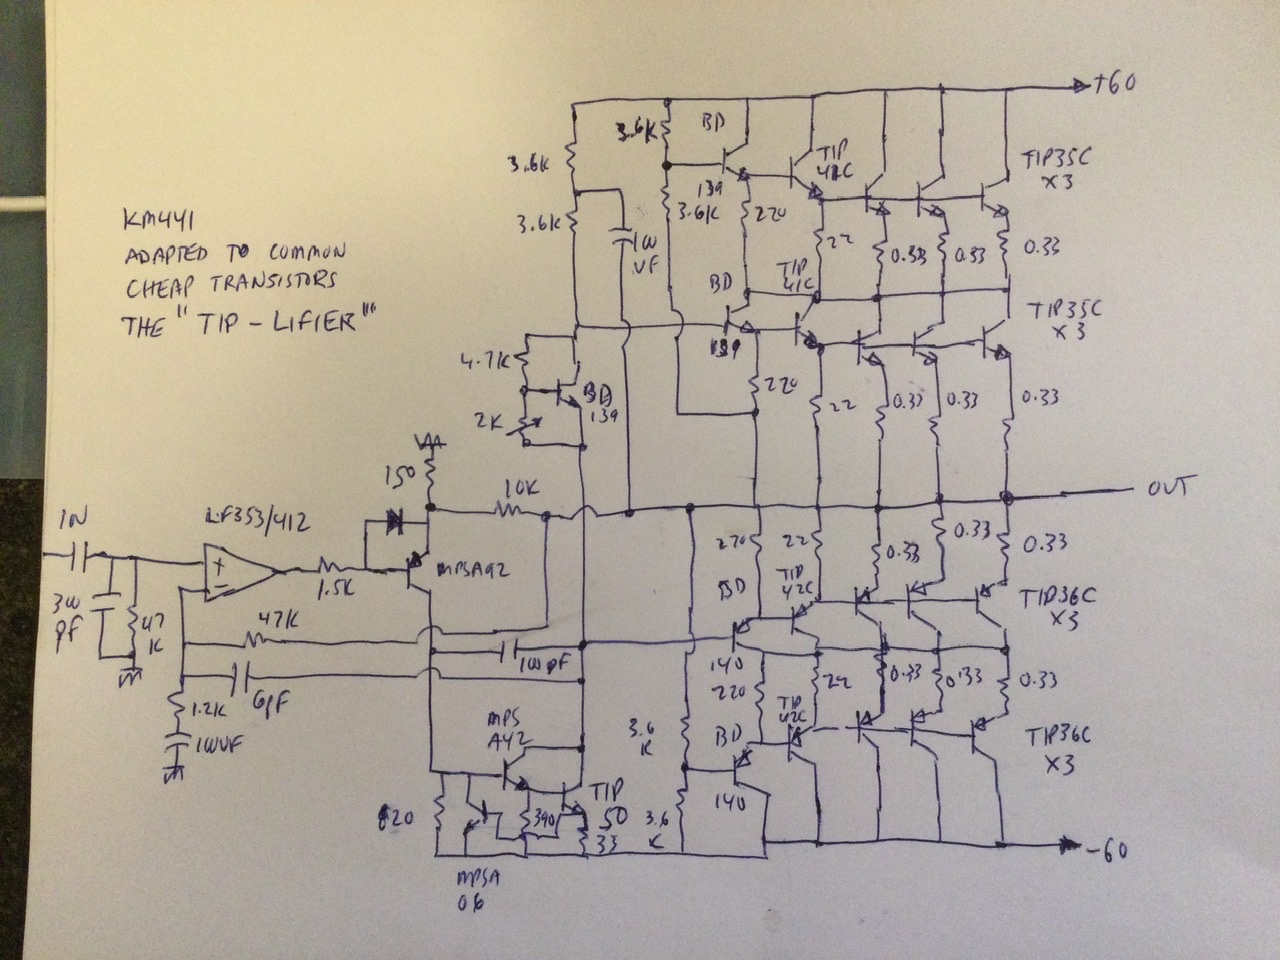 +60
3.6K
BD
139
TIP
41C
TIP35C
X3
3.6K
3.6K
3.6K
220
22
0.33
0.33
0.33
KM441
ADAPTED TO COMMON
CHEAP TRANSISTORS
THE "TIP-LIFIER"
100
UF
BD
139
TIP
41C
TIP35C
X3
4.7K
BD
139
2K
220
22
0.33
0.33
0.33
150
10K
OUT
1N
LF353/412
+
-
1.5K
MPSA92
300
PF
47
K
47K
220
22
0.33
0.33
0.33
BD
140
TIP
42C
TIP36C
X3
100PF
6PF
1.2K
100UF
220
22
0.33
0.33
0.33
MPS
A42
3.6
K
BD
140
TIP
42C
TIP36C
X3
820
390
TIP
50
33
3.6
K
-60
MPSA
06